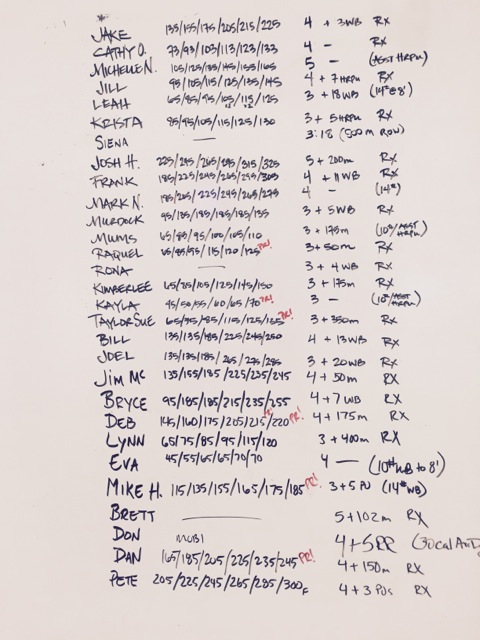 JAKE 135/155/175/205/215/225 4 + 3WB RX
CATHY O. 73/93/103/113/123/133 4 — RX
MICHELLE N. 105/125/135/145/155/165 5 — (ASST HRPU)
JILL 95/105/115/125/135/145 4 + 7 HRPU RX
LEAH 65/85/95/105/115/125 3 + 18 WB (14# @ 8')
KRISTA 85/95/105/115/125/130 3 + 5 HRPU RX
SIENA — 3:18 (500m ROW)
JOSH H. 225/245/265/295/315/325 5 + 200m RX
FRANK 185/225/245/265/295/305 4 + 11 WB RX
MARK N. 185/205/225/245/265/275 4 — (14#)
MURDOCK 95/135/185/185/185/135 3 + 5 WB RX
MUMS 65/85/95/100/105/110 3 + 175m (10#/ASST HRPU)
RAQUEL 65/85/95/115/120/125 PR! 3 + 50m RX
RONA — 3 + 4 WB RX
KIMBERLEE 65/85/105/125/145/150 3 + 175m RX
KAYLA 45/50/55/60/65/70 PR! 3 — (10#/ASST HRPU)
TAYLOR SUE 65/95/85/115/125/135 PR! 3 + 350m RX
BILL 135/135/185/225/245/250 4 + 13 WB RX
JOEL 135/135/185/265/275/285 3 + 20 WB RX
JIM MC 135/155/185/225/235/245 4 + 50m RX
BRYCE 95/185/185/215/235/255 4 + 7 WB RX
DEB 145/160/175/205/215/220 PR! 4 + 175m RX
LYNN 65/75/85/95/115/120 3 + 400m RX
EVA 45/55/65/65/70/70 4 — (10# WB to 8')
MIKE H. 115/135/155/165/175/185 PR! 3 + 5 PU (14# WB)
BRETT — 5 + 102m RX
DON MOBI 4 + 5 RR (30 cal
DAN 165/185/205/225/235/245 PR! 4 + 150m RX
PETE 205/225/245/265/285/300F 4 + 3 PUs RX